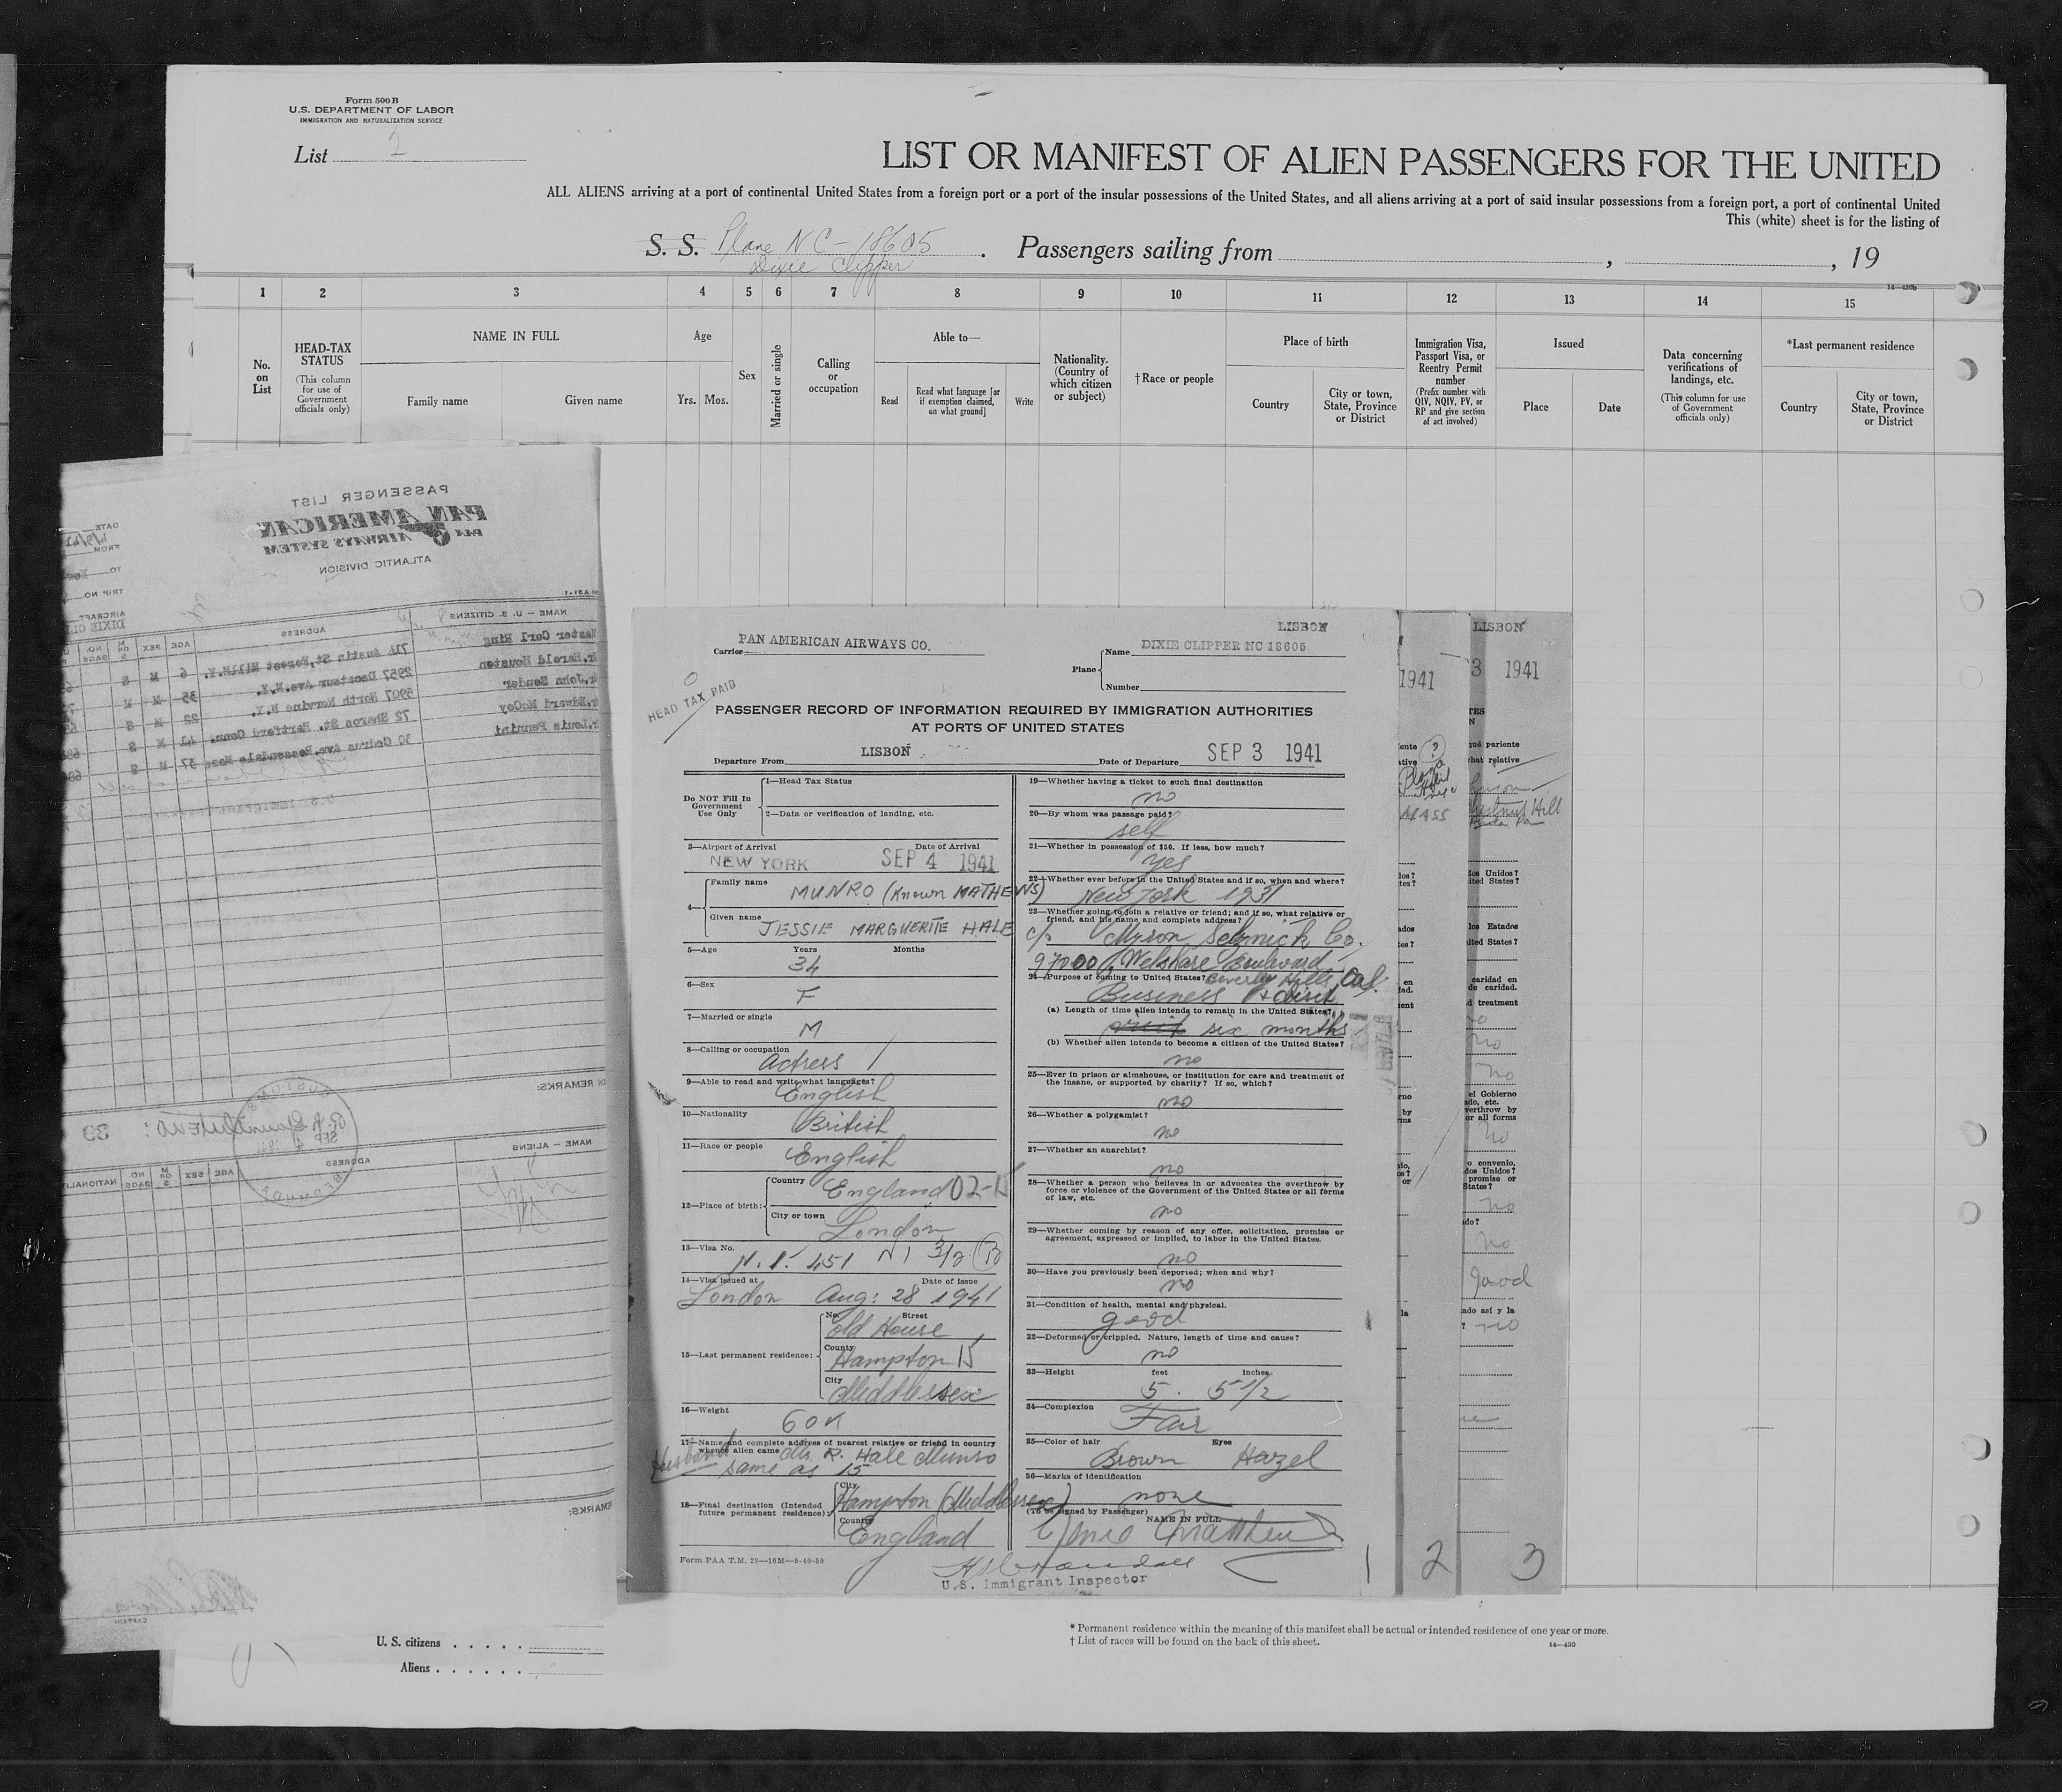 Form 500 B
U.S. DEPARTMENT OF LABOR
IMMIGRATION AND NATURALIZATION SERVICE
List 2
LIST OR MANIFEST OF ALIEN PASSENGERS FOR THE UNITED
ALL ALIENS arriving at a port of continental United States from a foreign port or a port of the insular possessions of the United States, and all aliens arriving at a port of said insular possessions from a foreign port, a port of continental United
This (white) sheet is for the listing of
S. S. Plane NC-18605. Passengers sailing from , , 19
Dixie Clipper
14-430b
1 2 3 4 5 6 7 8 9 10 11 12 13 14 15
No. on List
HEAD-TAX STATUS
(This column for use of Government officials only)
NAME IN FULL
Family name Given name
Age
Yrs. Mos.
Sex
Married or single
Calling or occupation
Able to—
Read
Read what language [or if exemption claimed, on what ground]
Write
Nationality. (Country of which citizen or subject)
† Race or people
Place of birth
Country
City or town, State, Province or District
Immigration Visa, Passport Visa, or Reentry Permit number
(Prefix number with QIV, NQIV, PV, or RP and give section of act involved)
Issued
Place Date
Data concerning verifications of landings, etc.
(This column for use of Government officials only)
*Last permanent residence
Country
City or town, State, Province or District
PASSENGER LIST
PAN AMERICAN
PAA AIRWAYS SYSTEM
ATLANTIC DIVISION
DATE
FROM
TO
TRIP NO.
AIRCRAFT
DIXIE CL
NAME — U. S. CITIZENS ADDRESS AGE SEX M OR S NO. BAGS
Master Carl Ring 71 Austin St, Forest Hill N.Y. 6 M S
r. Harold Houston 2957 Decatur Ave. N.Y. 35 M M
r. John Souder 5907 North Nervine N.Y. 22 M S
r. Edward McCoy 72 Sharos St. Hartford Conn. 41 M S
r. Louis Pennini 30 Cedrus Ave. Rossendale Mass 37 M S
REMARKS:
39
CUSTOMS
SEP 4
BERMUDA
NAME — ALIENS ADDRESS AGE SEX M OR S NO. BAGS NATIONALIT
REMARKS:
CAPTAIN
U. S. citizens
Aliens
LISBON
PAN AMERICAN AIRWAYS CO.
Carrier
Plane
Name DIXIE CLIPPER NC 18605
Number
HEAD TAX PAID
PASSENGER RECORD OF INFORMATION REQUIRED BY IMMIGRATION AUTHORITIES
AT PORTS OF UNITED STATES
Departure From LISBON Date of Departure SEP 3 1941
Do NOT Fill In Government Use Only
1—Head Tax Status
2—Data or verification of landing, etc.
3—Airport of Arrival Date of Arrival
NEW YORK SEP 4 1941
4—
Family name MUNRO (Known MATHEWS)
Given name JESSIE MARGUERITE HALE
5—Age Years Months
34
6—Sex
F
7—Married or single
M
8—Calling or occupation
Actress
9—Able to read and write what languages?
English
10—Nationality
British
11—Race or people
English
12—Place of birth:
Country England 02-15
City or town London
13—Visa No.
N.I. 451 N I 3/2 (B)
14—Visa issued at Date of Issue
London Aug: 28 1941
15—Last permanent residence:
No. Street
Old House,
County
Hampton 15
City
Middlessex
16—Weight
60 K
17—Name and complete address of nearest relative or friend in country whence alien came
Husband Mr. R. Hale Munro
same as 15
18—Final destination (Intended future permanent residence):
City Hampton (Middlessex)
Country England
Form PAA T.M. 28—10M—9-40-50
19—Whether having a ticket to such final destination
no
20—By whom was passage paid?
self
21—Whether in possession of $50. If less, how much?
yes
22—Whether ever before in the United States and if so, when and where?
New York 1931
23—Whether going to join a relative or friend; and if so, what relative or friend, and his name and complete address?
c/o Myron Selznick Co.
9700 Welshare Boulevard
Beverly Hills, Cal.
24—Purpose of coming to United States?
Business + visit
(a) Length of time alien intends to remain in the United States?
six months
(b) Whether alien intends to become a citizen of the United States?
no
25—Ever in prison or almshouse, or institution for care and treatment of the insane, or supported by charity? If so, which?
no
26—Whether a polygamist?
no
27—Whether an anarchist?
no
28—Whether a person who believes in or advocates the overthrow by force or violence of the Government of the United States or all forms of law, etc.
no
29—Whether coming by reason of any offer, solicitation, promise or agreement, expressed or implied, to labor in the United States.
no
30—Have you previously been deported; when and why?
no
31—Condition of health, mental and physical.
good
32—Deformed or crippled. Nature, length of time and cause?
no
33—Height feet inches
5. 5 1/2
34—Complexion
Fair
35—Color of hair Eyes
Brown Hazel
36—Marks of identification
none
(To be signed by Passenger)
NAME IN FULL
U.S. Immigrant Inspector
1 2 3
1941
MASS
LISBON
3 1941
qué pariente
hat relative
Chestnut Hill
los Unidos?
ited States?
los Estados
ited States?
caridad en
de caridad.
d treatment
no
no
no
el Gobierno
ado, etc.
verthrow by
or all forms
no
o convenio,
dos Unidos?
promise or
States?
no
no
good
ado así y la
no
* Permanent residence within the meaning of this manifest shall be actual or intended residence of one year or more.
† List of races will be found on the back of this sheet.
14—430